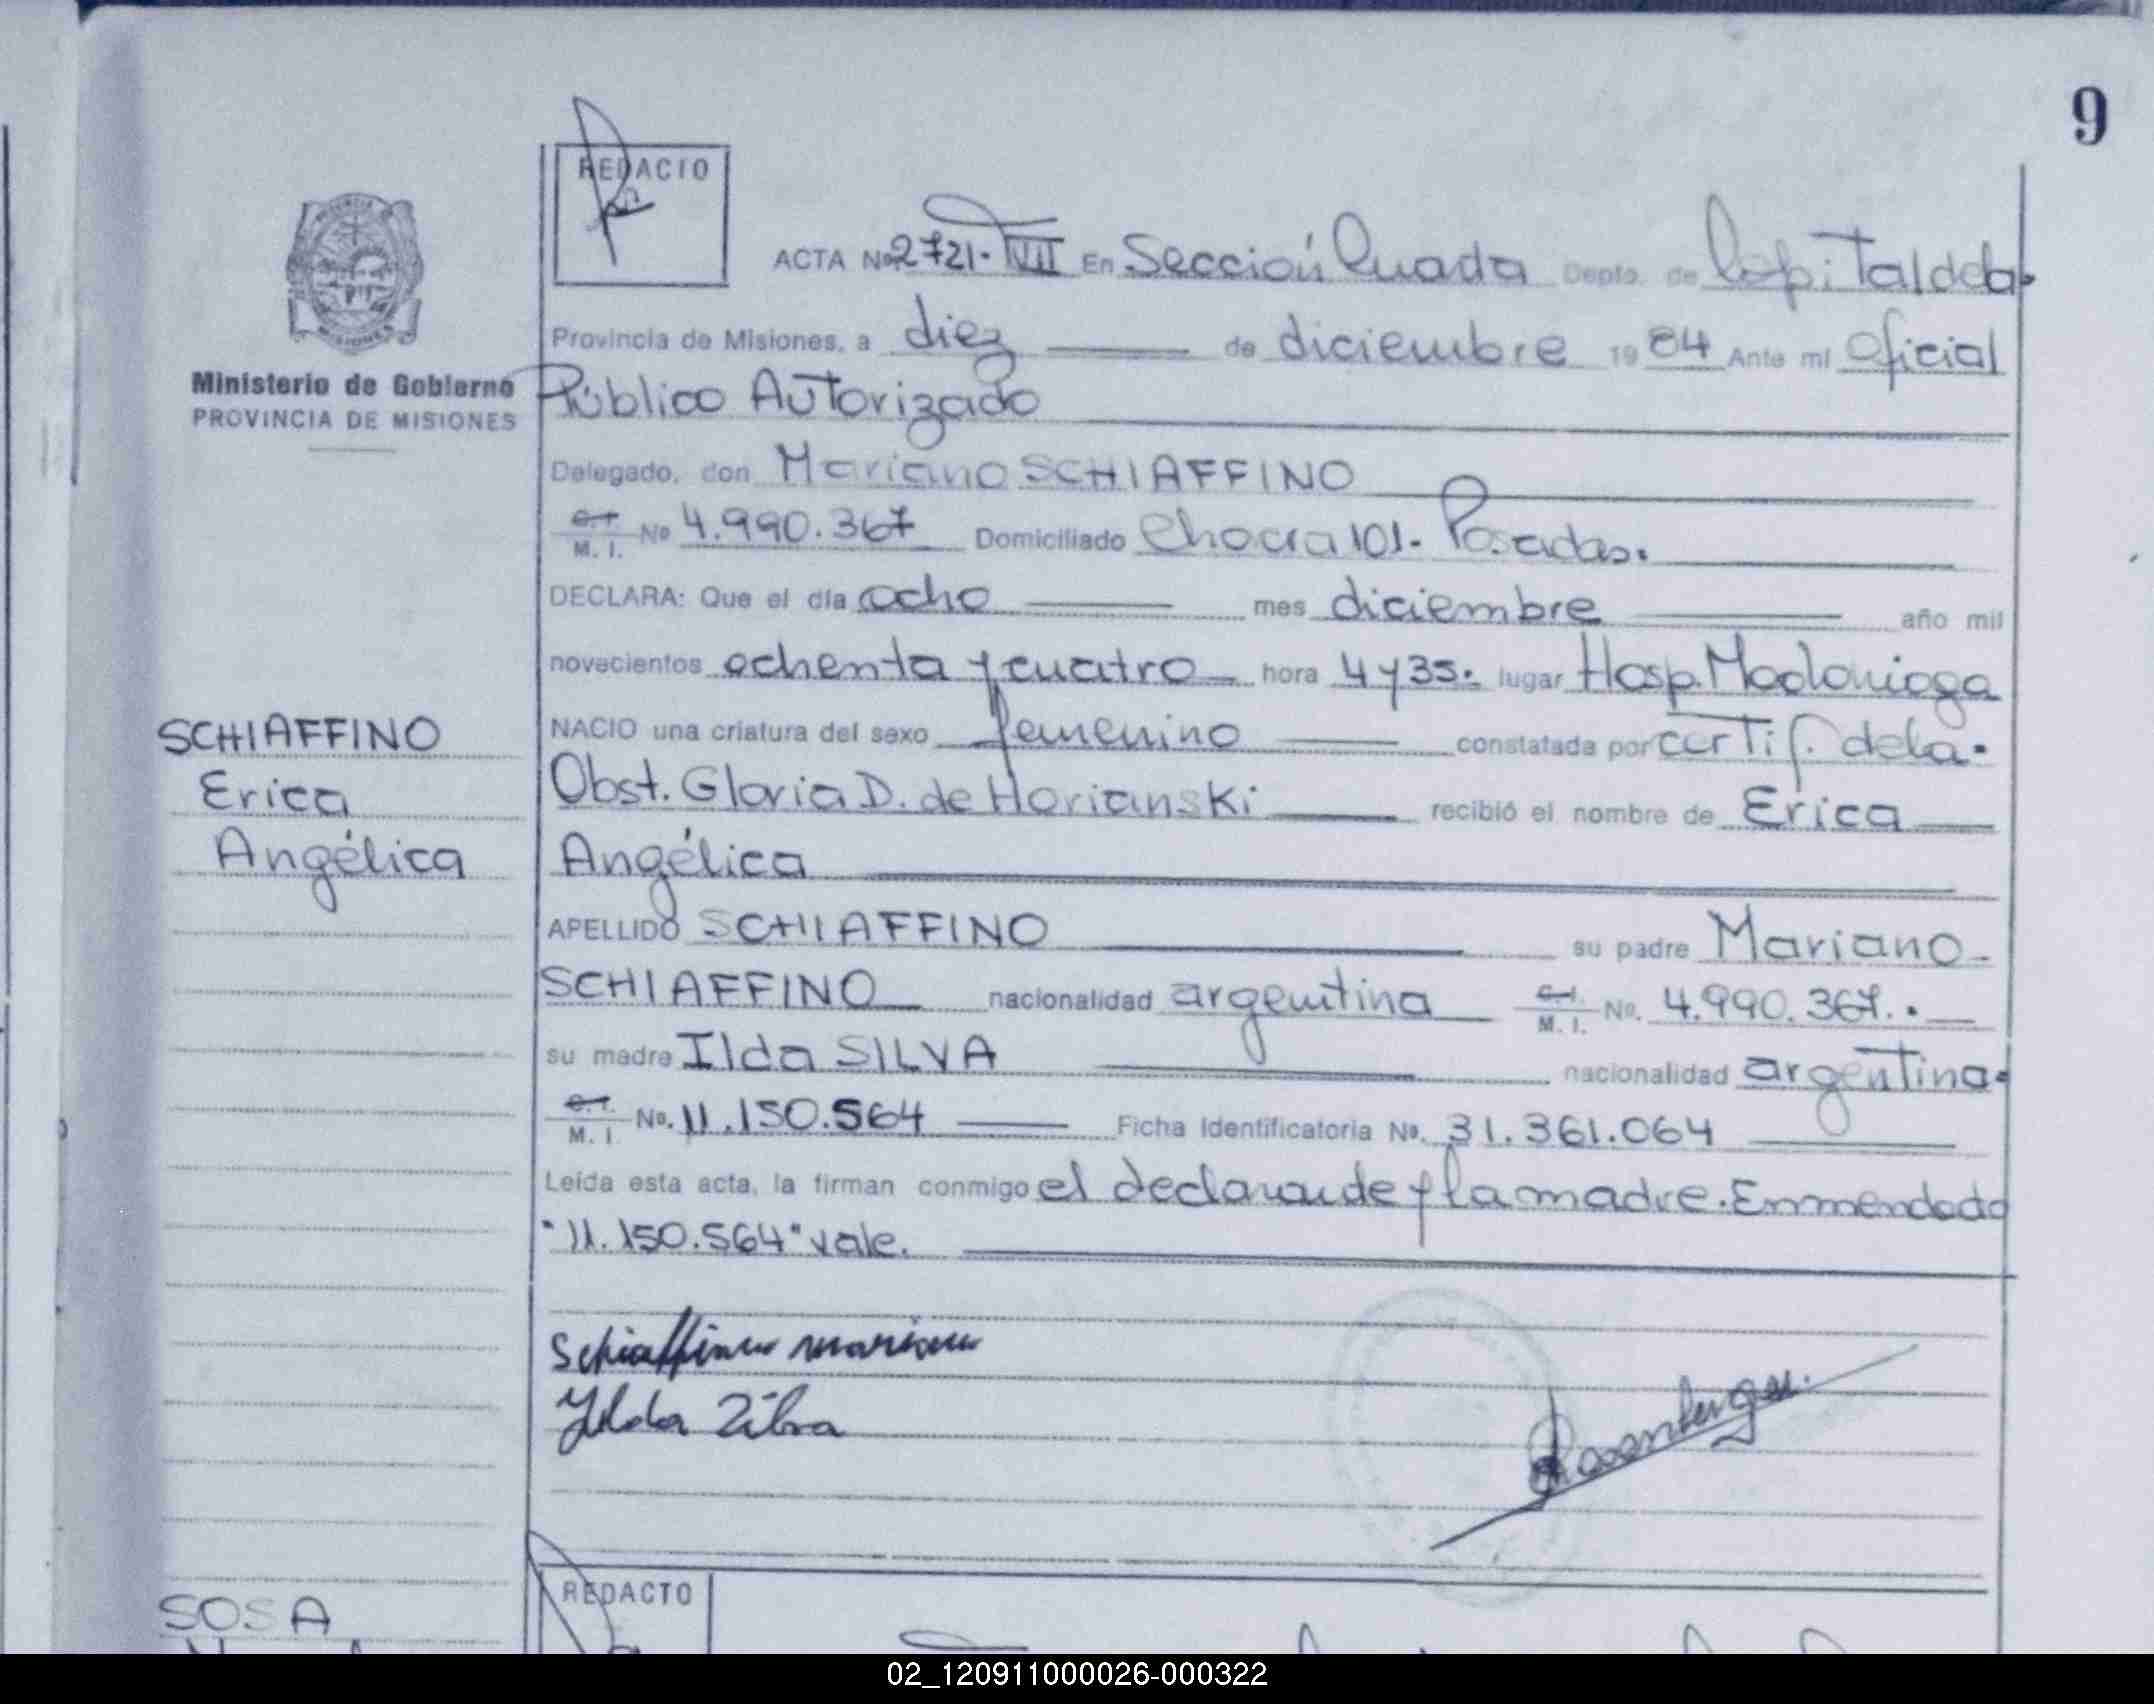 9
REDACTO
ACTA Nº 2721-VIII En Sección Cuarta Depto. de Capital de la
Provincia de Misiones, a diez de diciembre 1984 Ante mí Oficial
Ministerio de Gobierno
PROVINCIA DE MISIONES
Público Autorizado
Delegado, don Mariano SCHIAFFINO
C.I. M.I. Nº 4.990.367 Domiciliado Chacra 101. Posadas.
DECLARA: Que el día ocho mes diciembre año mil
novecientos ochenta y cuatro hora 4 y 35. lugar Hosp. Madariaga
NACIO una criatura del sexo femenino constatada por certif. de la
Obst. Gloria D. de Horianski recibió el nombre de Erica
Angélica
SCHIAFFINO
Erica
Angélica
APELLIDO SCHIAFFINO su padre Mariano
SCHIAFFINO nacionalidad argentina C.I. M.I. Nº. 4.990.367.
su madre Ilda SILVA nacionalidad argentina
C.I. M.I. Nº. 11.150.564 Ficha Identificatoria Nº. 31.361.064
Leída esta acta, la firman conmigo el declarante y la madre. Enmendado
"11.150.564" vale.
Schiaffino mariano
Ylda Zilva
SOSA
REDACTO
02_120911000026-000322